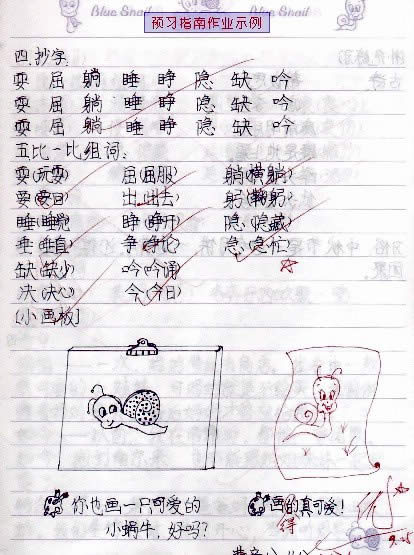 Blue Snail 预习指南作业示例 Blue Snail
四.抄字:
耍 屈 躺 睡 睁 隐 缺 吟
耍 屈 躺 睡 睁 隐 缺 吟
耍 屈 躺 睡 睁 隐 缺 吟
五比一比组词:
耍(玩耍) 屈(屈服) 躺(横躺)
要 出(出去) 躬(鞠躬)
睡(睡觉) 睁(睁开) 隐(隐藏)
垂(垂直) 争(争论) 急(急忙)
缺(缺少) 吟(吟诵)
决(决心) 今(今日)
[小画板]
你也画一只可爱的 画的真可爱!
小蜗牛,好吗? 得